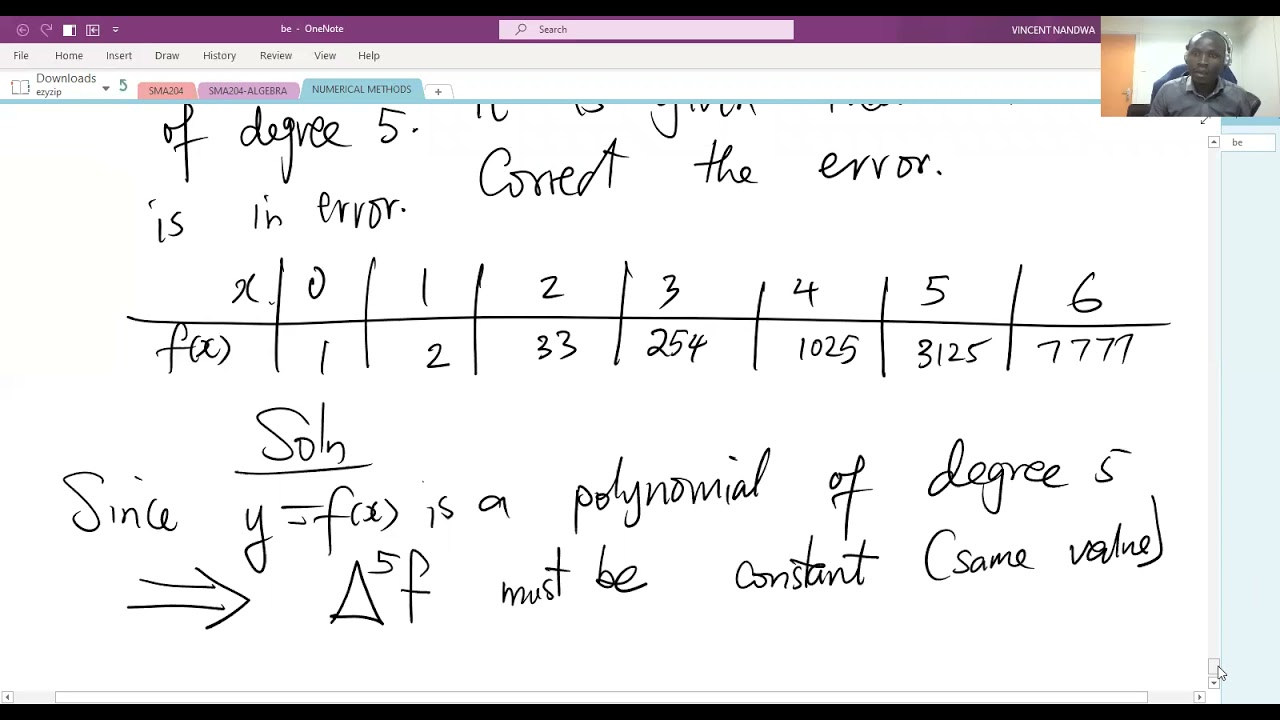 be - OneNote
Search
VINCENT NANDWA
File Home Insert Draw History Review View Help
Downloads
ezyzip
SMA204 SMA204-ALGEBRA NUMERICAL METHODS +
be
of degree 5. It is given
is in error. Correct the error.
x 0 1 2 3 4 5 6
f(x) 1 2 33 254 1025 3125 7777
Soln
Since y = f(x) is a polynomial of degree 5
⟹ Δ⁵f must be constant (same value)